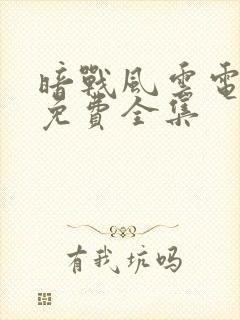 暗戰風雲電
免費全集
有我坑吗